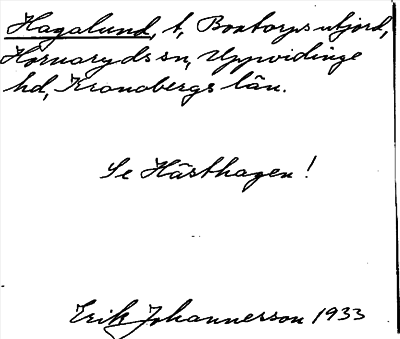 Hagalund, t, Boatorps utjord,
Hornaryds sn, Uppvidinge
hd, Kronobergs län.
Se Hästhagen!
Erik Johannesson 1933